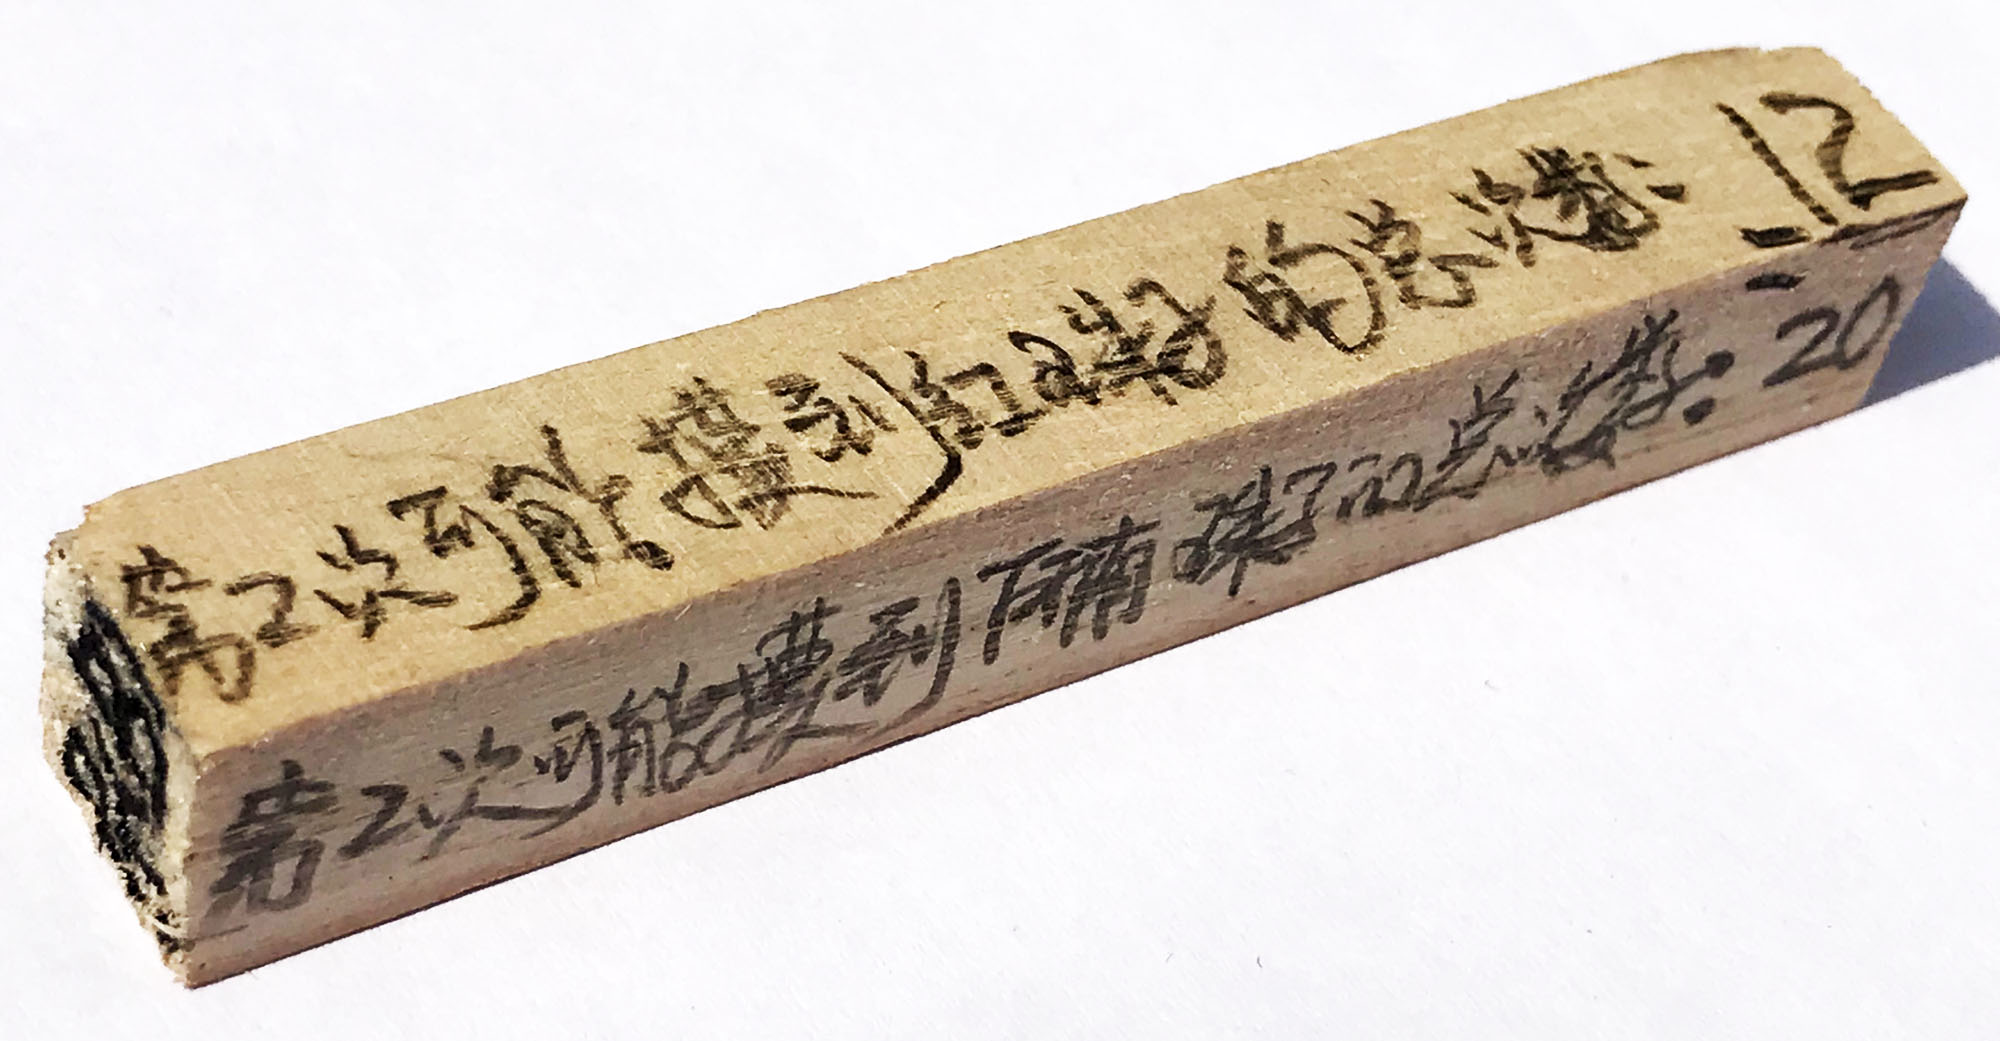 第2次可能摸到红珠子的总次数: 12
第2次可能摸到所有珠子的总次数: 20